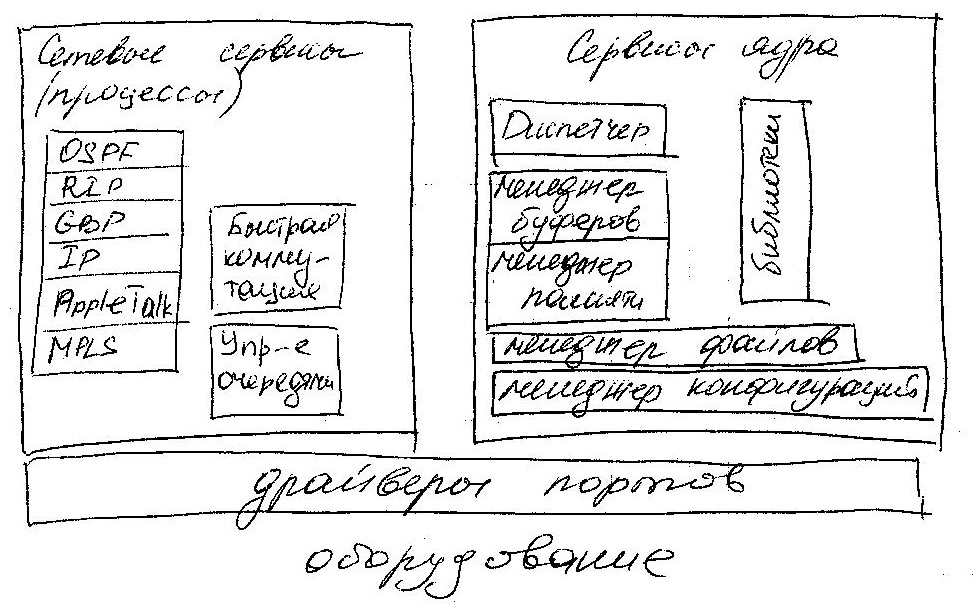 Сетевые сервисы
(процессы)
OSPF
RIP
GBP
IP
AppleTalk
MPLS
Быстрая
комму-
тация
Упр-е
очередями
Сервисы ядра
Диспетчер
менеджер
буферов
менеджер
памяти
библиотеки
менеджер файлов
менеджер конфигураций
драйверы портов
оборудование